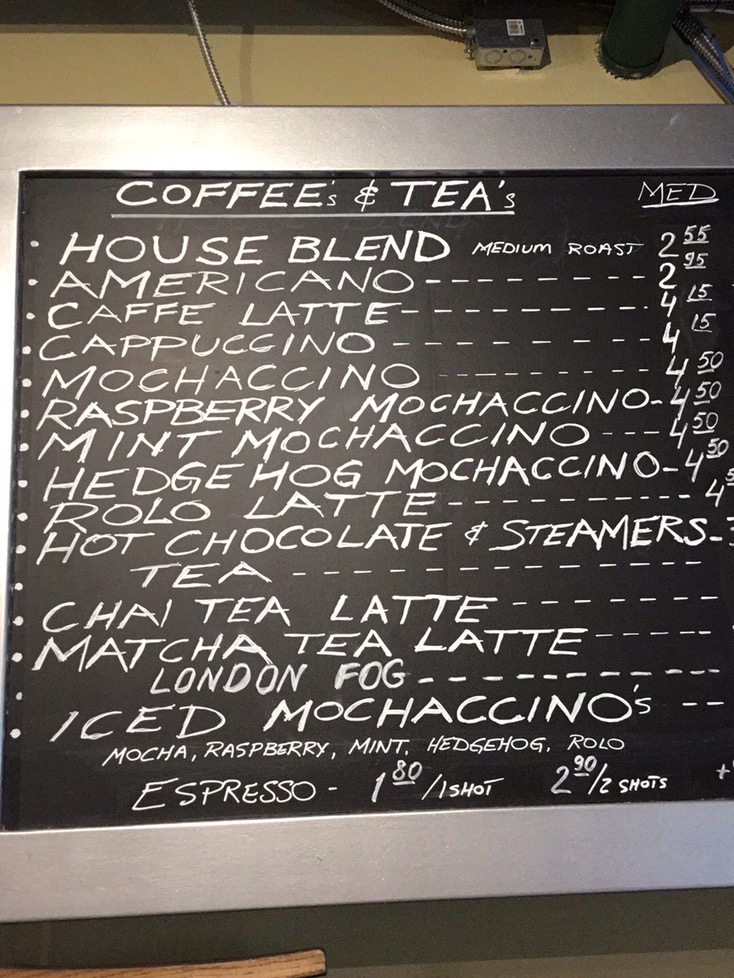 COFFEE's & TEA's MED
• HOUSE BLEND MEDIUM ROAST 2 55
• AMERICANO ------- 2 95
• CAFFE LATTE ------- 4 15
• CAPPUCCINO ------- 4 15
• MOCHACCINO ------ 4 50
• RASPBERRY MOCHACCINO - 4 50
• MINT MOCHACCINO --- 4 50
• HEDGEHOG MOCHACCINO - 4 50
• ROLO LATTE ------- 4
• HOT CHOCOLATE & STEAMERS -
• TEA ------------
• CHAI TEA LATTE ------
• MATCHA TEA LATTE -----
• LONDON FOG ---------
• ICED MOCHACCINO's --
MOCHA, RASPBERRY, MINT, HEDGEHOG, ROLO
ESPRESSO - 1 80/1 SHOT 2 90/2 SHOTS +